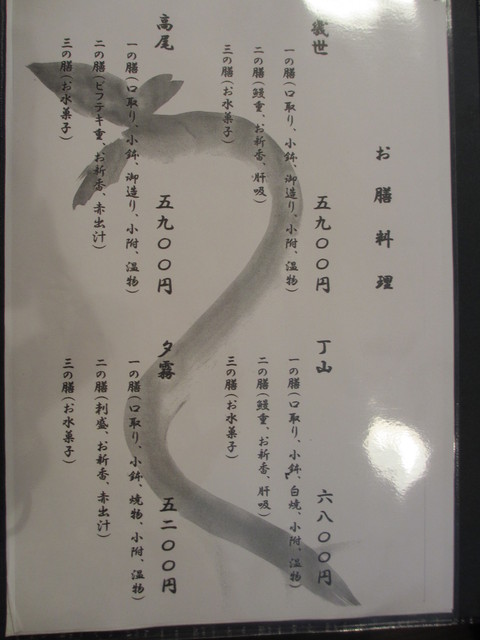 お膳料理
幾世
一の膳(口取り、小鉢、御造り、小附、温物)
二の膳(鰻重、お新香、肝吸)
三の膳(お水菓子)
五九〇〇円
丁山
一の膳(口取り、小鉢、白焼、小附、温物)
二の膳(鰻重、お新香、肝吸)
三の膳(お水菓子)
六八〇〇円
高尾
一の膳(口取り、小鉢、御造り、小附、温物)
二の膳(ビフテキ重、お新香、赤出汁)
三の膳(お水菓子)
五九〇〇円
夕霧
一の膳(口取り、小鉢、焼物、小附、温物)
二の膳(利盛、お新香、赤出汁)
三の膳(お水菓子)
五二〇〇円